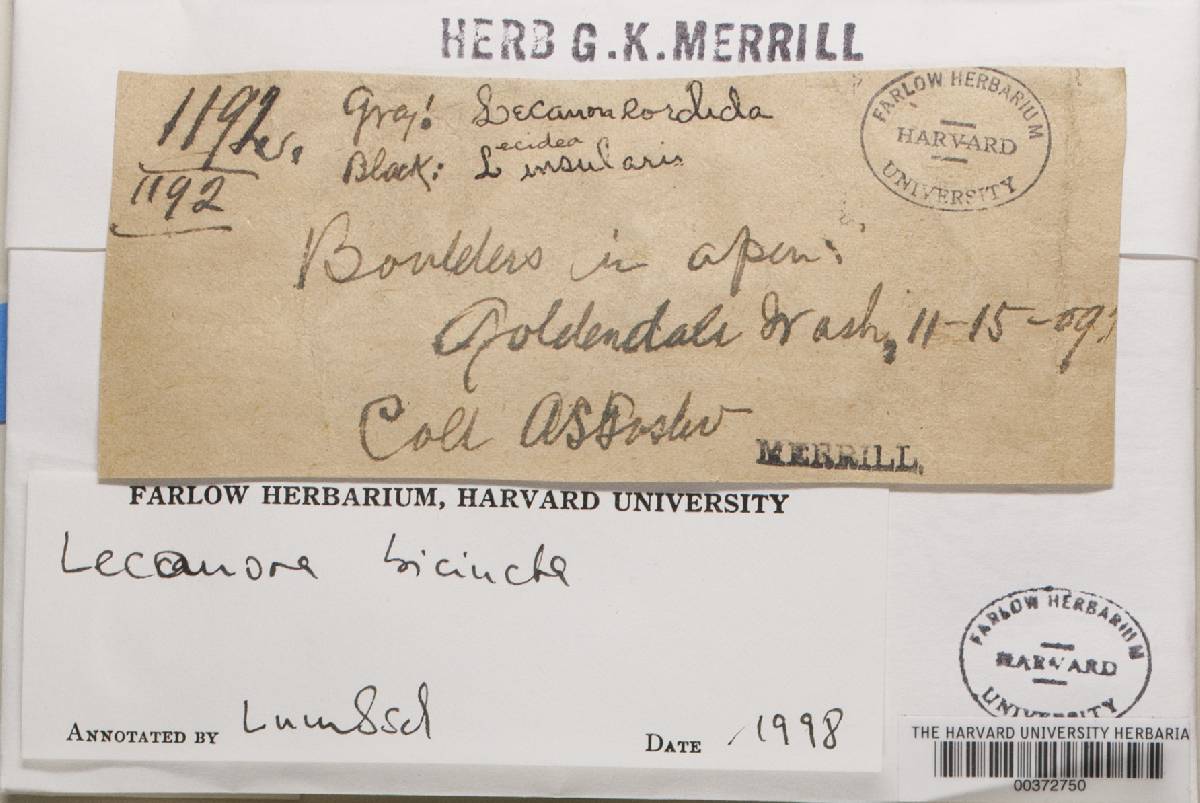 HERB G.K.MERRILL
1192
1192
Gray! Lecanora sordida
Black: Lecidea insularis
FARLOW HERBARIUM
HARVARD
UNIVERSITY
Boulders in open:
Goldendale Wash, 11-15-09.
Coll ASFoster
MERRILL.
FARLOW HERBARIUM, HARVARD UNIVERSITY
Lecanora bicincta
ANNOTATED BY Lumbsch
DATE 1998
FARLOW HERBARIUM
HARVARD
UNIVERSITY
THE HARVARD UNIVERSITY HERBARIA
00372750